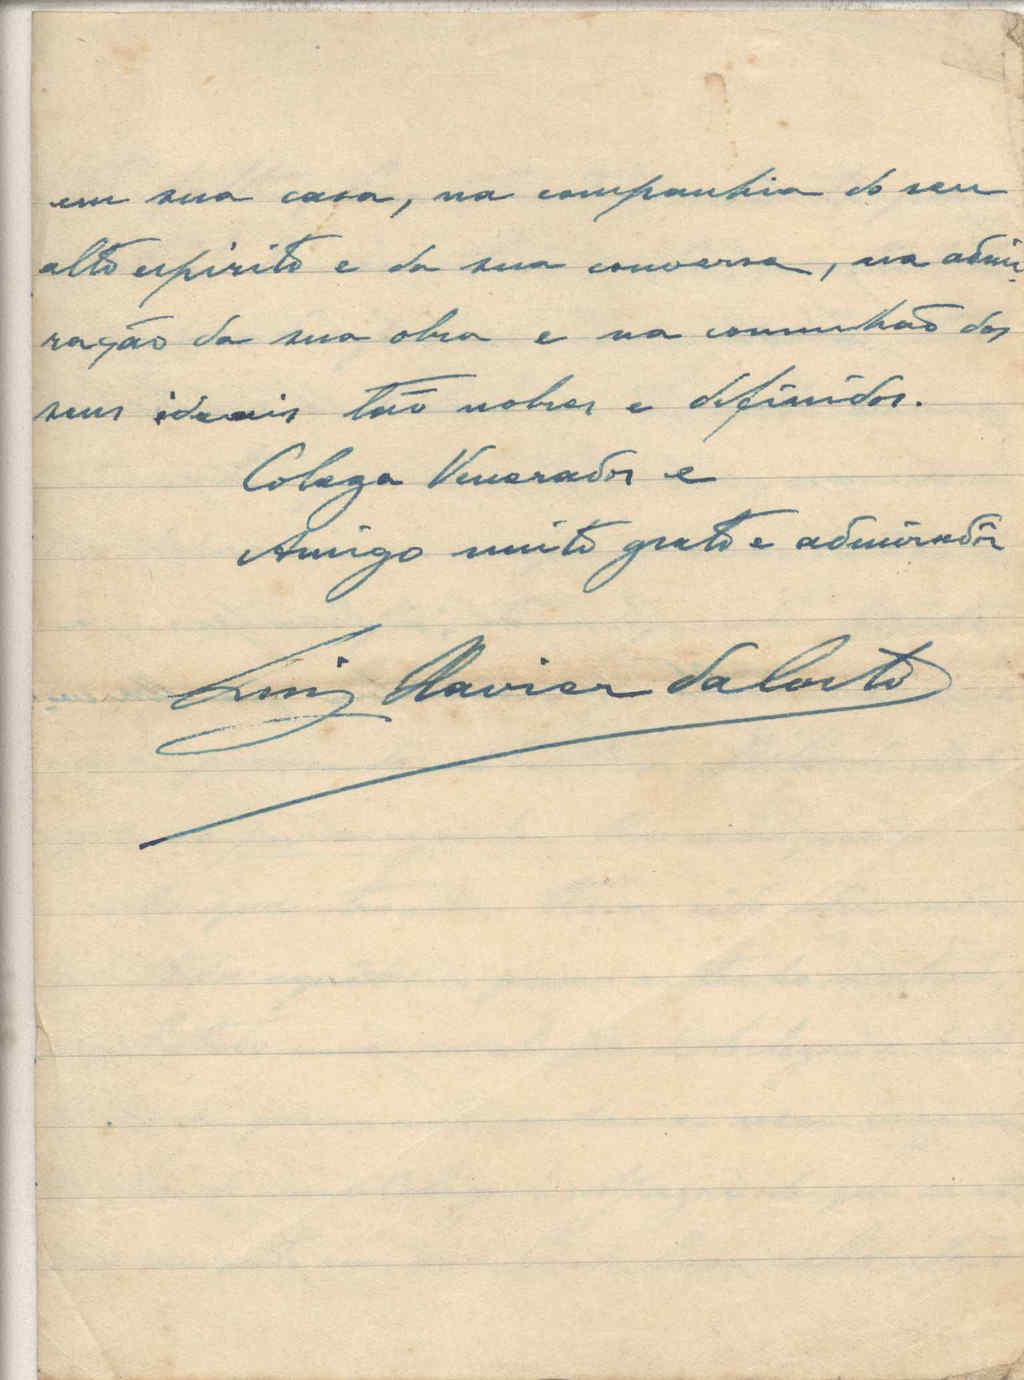 em sua casa, na companhia do seu
alto espirito e da sua conversa, na admi-
ração da sua obra e na comunhão dos
seus ideais tão nobres e definidos.
Colega Venerador e
Amigo muito grato e admirador
Luiz Xavier da Costa